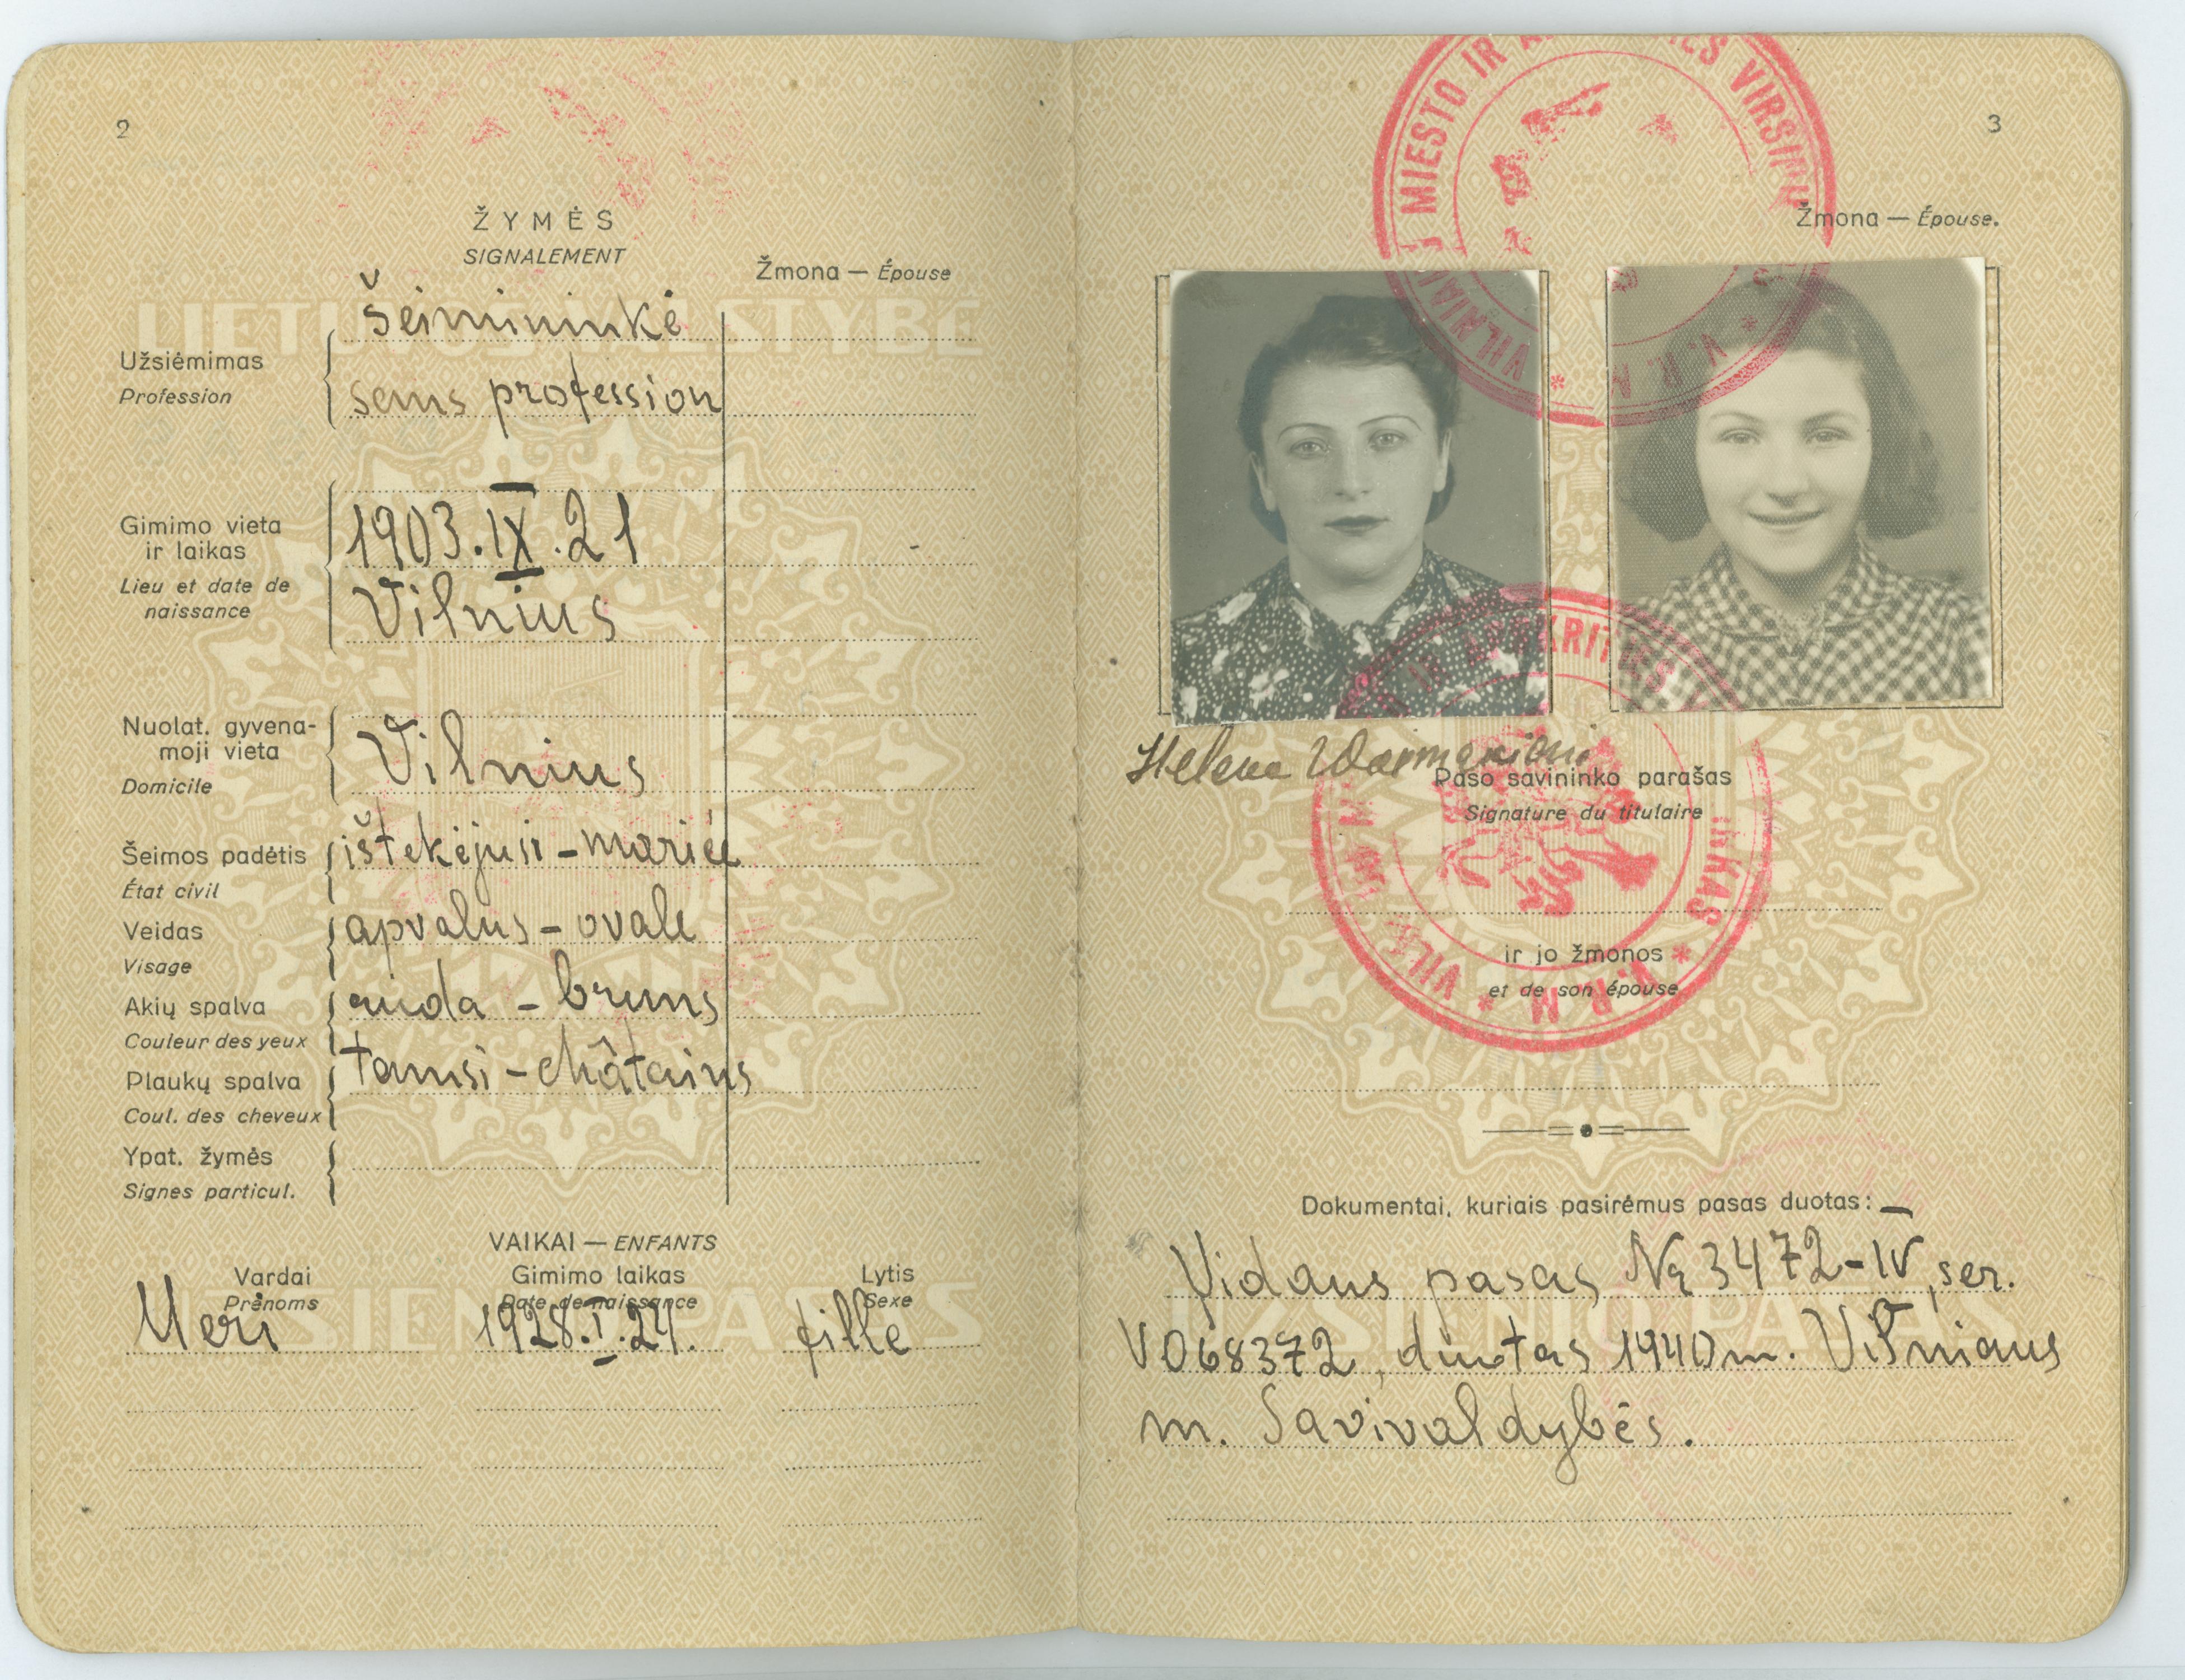 2
ŽYMĖS
SIGNALEMENT
Žmona — Épouse
LIETUVOS VALSTYBĖ
Užsiėmimas
Profession
Šeimininkė
sens profession
Gimimo vieta
ir laikas
Lieu et date de
naissance
1903.IX.21
Vilnius
Nuolat. gyvena-
moji vieta
Domicile
Vilnius
Šeimos padėtis
État civil
ištekėjusi - mariée
Veidas
Visage
apvalus - ovale
Akių spalva
Couleur des yeux
ruda - bruns
Plaukų spalva
Coul. des cheveux
tamsi - châtains
Ypat. žymės
Signes particul.
VAIKAI — ENFANTS
Vardai Gimimo laikas Lytis
Prénoms Date de naissance Sexe
Meri 1928.I.24. fille
UŽSIENIO PASAS
3
MIESTO IR VIRŠININ
VILNIAUS
V. R. M
Žmona — Épouse.
Helena
Paso savininko parašas
Signature du titulaire
IR APSKRITIES
V. R. M * VILN
ir jo žmonos
et de son épouse
Dokumentai, kuriais pasirėmus pasas duotas: —
Vidaus pasas № 3472-IV, ser.
V 068372, duotas 1940 m. Vilniaus
m. Savivaldybės.
UŽSIENIO PASAS